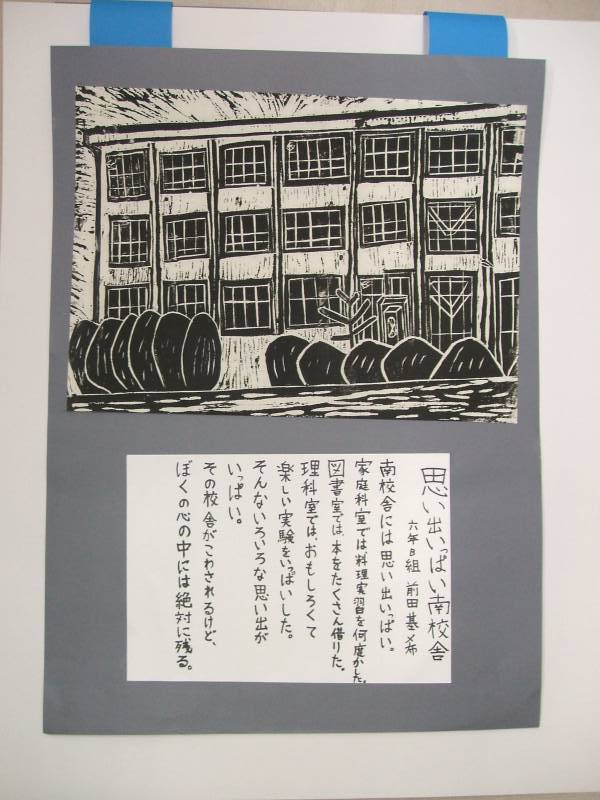 思い出いっぱい南校舎
六年B組 前田基希
南校舎には思い出いっぱい。
家庭科室では、料理実習を何度かした。
図書室では、本をたくさん借りた。
理科室では、おもしろくて
楽しい実験をいっぱいした。
そんないろいろな思い出が
いっぱい。
その校舎がこわされるけど、
ぼくの心の中には絶対に残る。